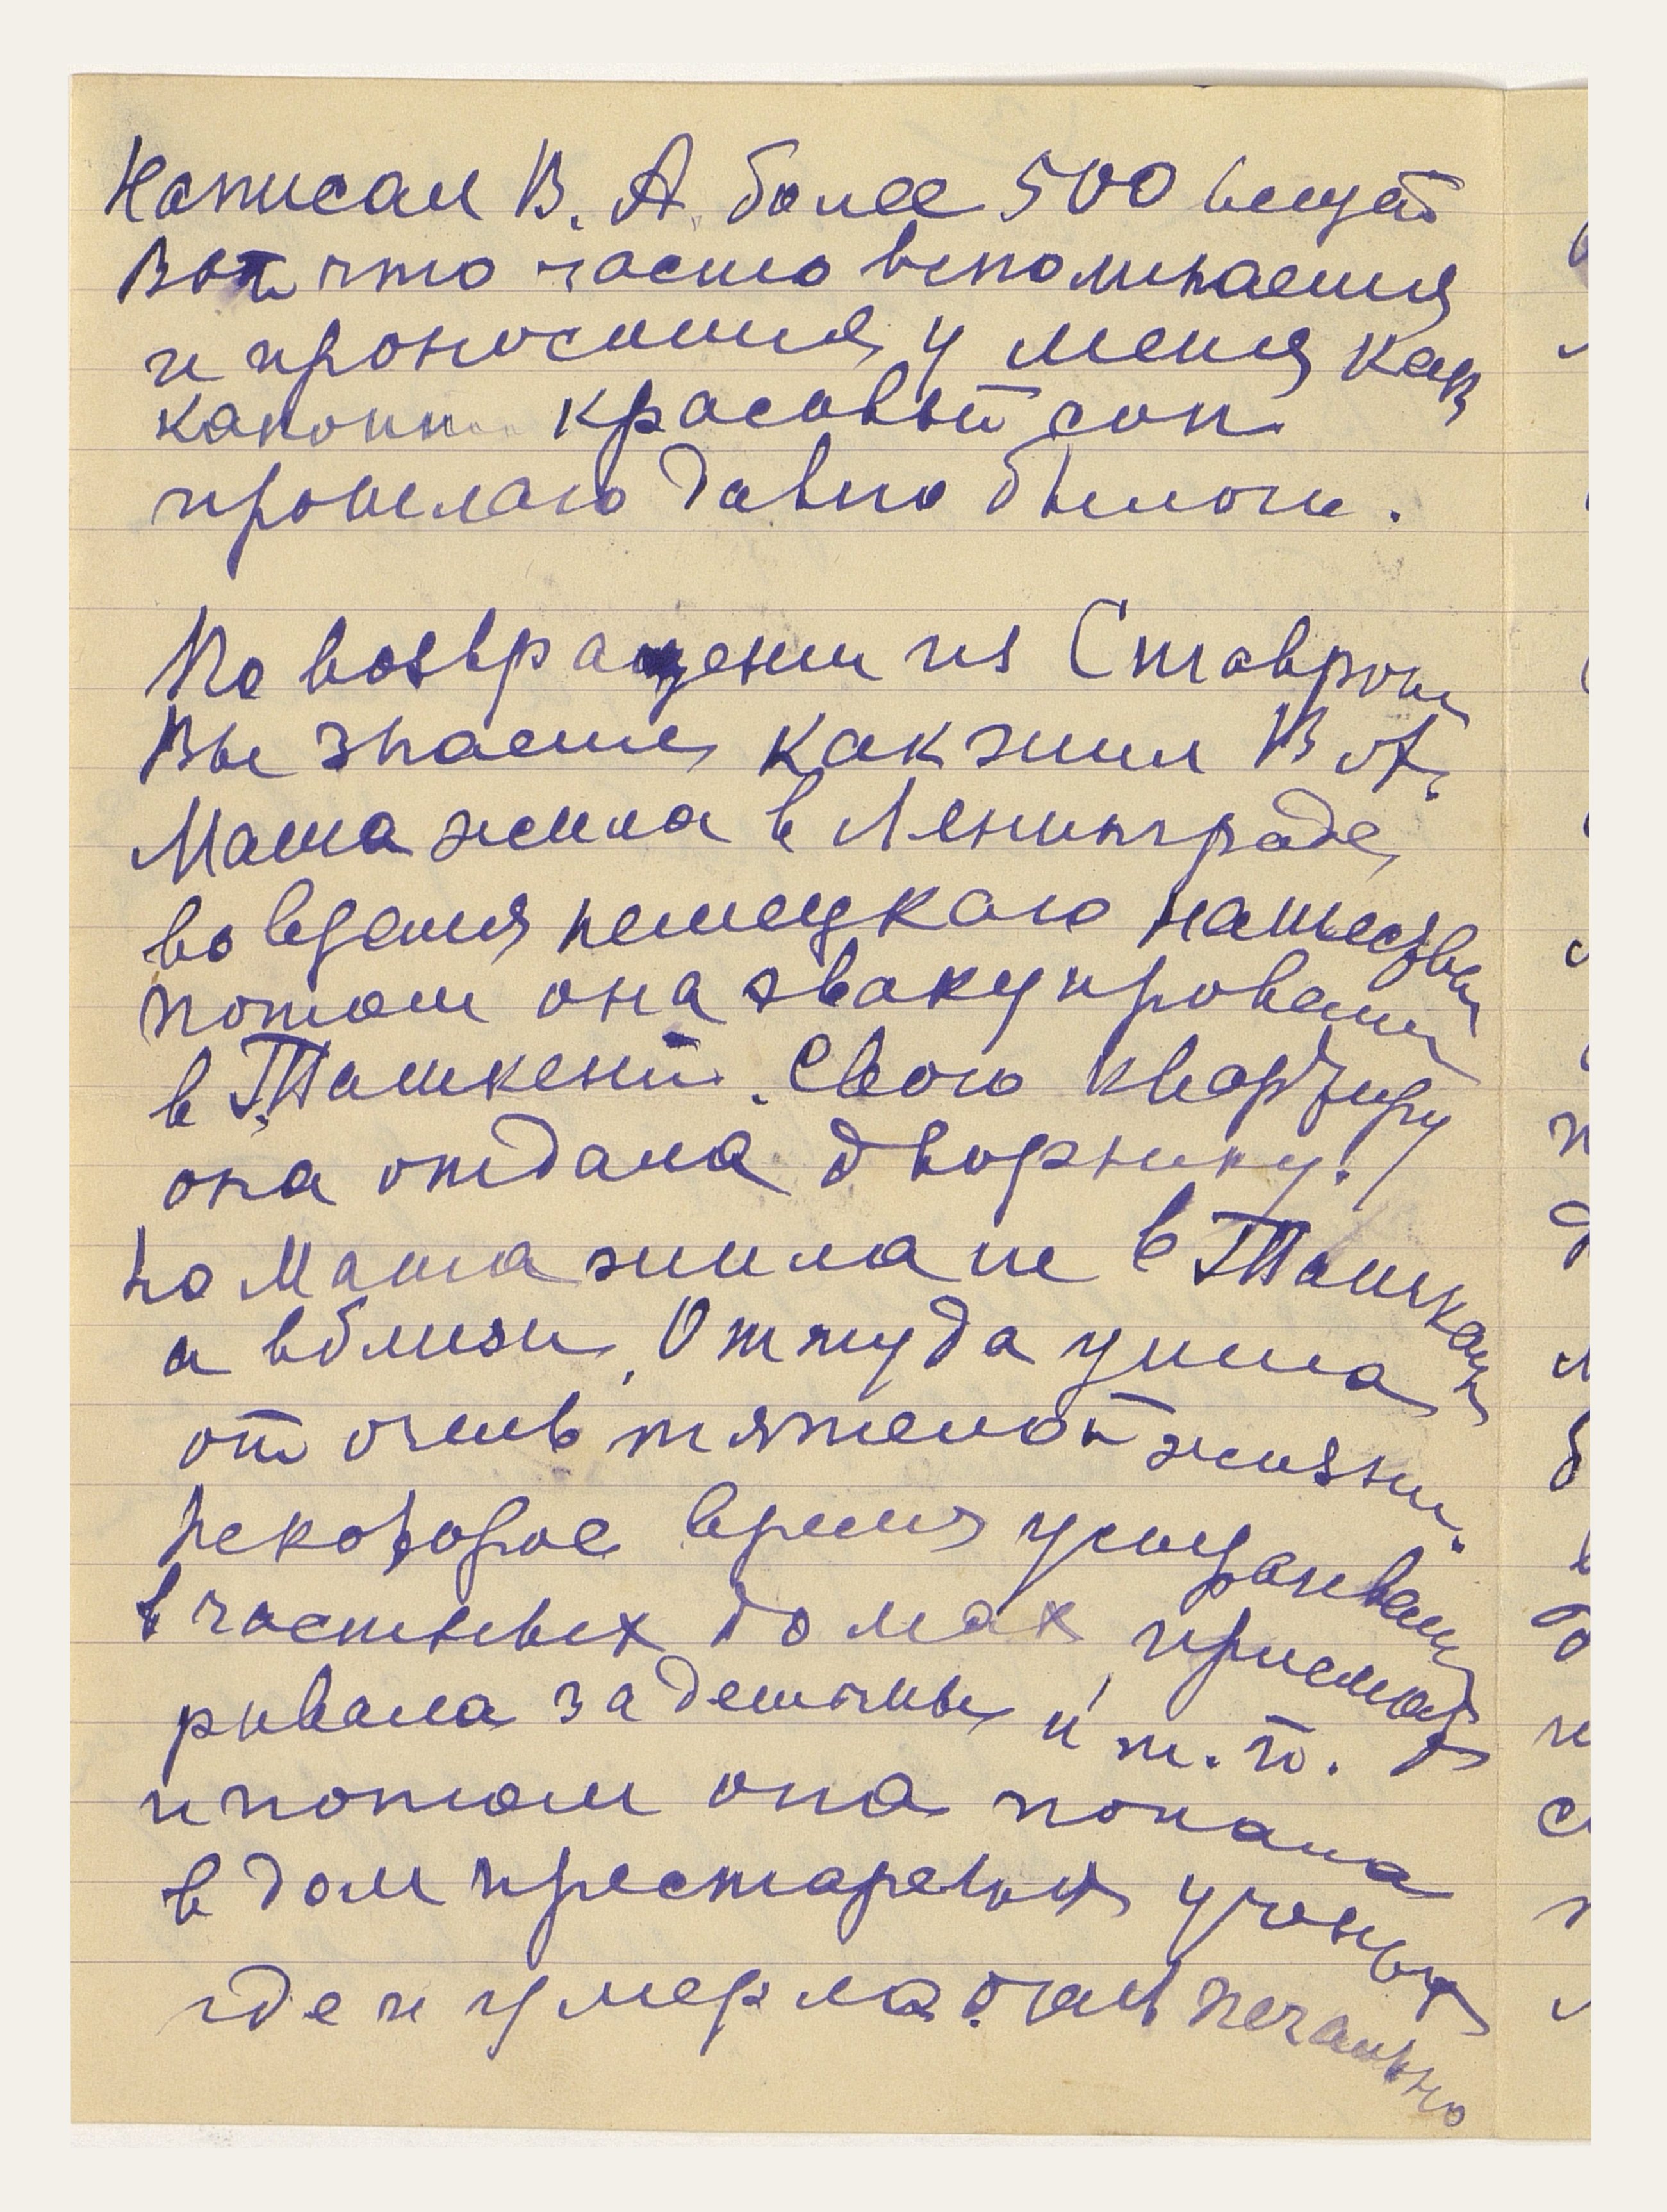 Написал В. А. более 500 вещей
Вот что часто вспоминается
и проносится у меня как
какой красивый сон
прошлаго давно былого.
По возвращении из Ставропол
Вы знаете, как жил В. А.
Маша жила в Ленинграде,
во время немецкаго нашестви
потом она эвакуирован
в Ташкент. Свою квартиру
она отдала дворнику.
Но Маша жила не в Ташкенте
а вблизи. Оттуда ушла
от очень тяжелой жизни.
Некоторое время
в частных домах, присмат
ривала за детьми и т. п.
и потом она попала
в дом престарелых ученых
где и умерла. Очень печально